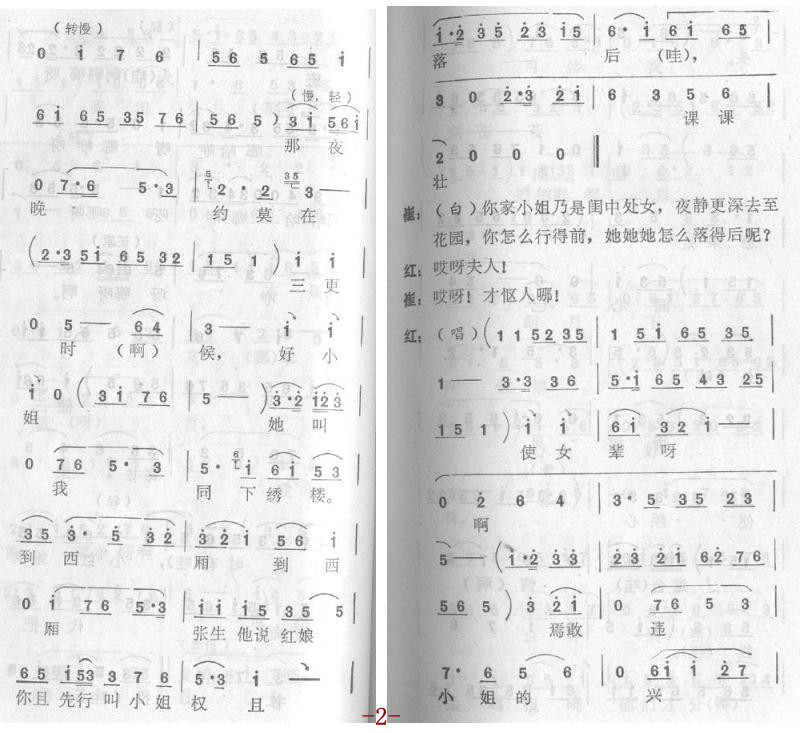 （转慢）
0 i 7 6 | 56 5 65 i |
（慢，轻）
6i 65 35 76 | 56 5 ) 3i 56i |
那 夜
0 7·6 5·3 | 2· 2 35 |
晚 约 莫 在
( 2·3 51 65 32 | 1 5 1 ) i i |
三 更
0 5 — 64 | 3 — i i |
时 （啊） 候， 好 小
i 0 ( 3i 76 | 5 — ) 3·2 i23 |
姐 她 叫
0 76 5· 3 | 5· i 6i 53 |
我 同 下 绣 楼。
35 3· 5 32 | 35 65 56 i |
到 西 厢 到 西
0 i 76 5·3 | 55 11 35 5 |
厢 张生 他说 红娘
65 153 37 6 | 5·3 i — |
你且 先行 叫 小姐 权 且
i·2 35 23 i5 | 6· i 6i 65 |
落 后 （哇），
3 0 2·3 2i | 6 3 56 6 |
课 课
2 0 0 0 ‖
壮
崔：（白）你家小姐乃是闺中处女，夜静更深去至
花园，你怎么行得前，她她她怎么落得后呢？
红：哎呀夫人！
崔：哎呀！才怄人哪！
红：（唱）( 1 1 52 35 | 15 i 65 35 |
1 — 3·3 36 | 5·i 65 43 25 |
1 5 1 ) i i | 6i 32 i — |
使 女 辈 呀
0 2 6 4 | 3· 5 35 23 |
啊
5 — ( i·2 33 | 23 2i 62 76 |
56 5 ) 3 2i | 0 76 5 3 |
焉敢 违
7· 6 5 6 | 0 6i i 27 |
小 姐 的 兴
-2-